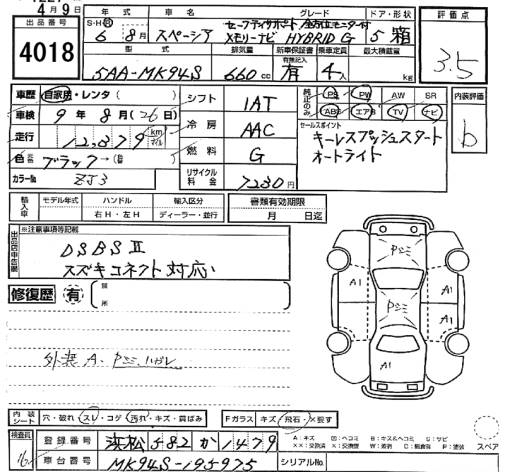 4月9日
出品番号 4018
S・H・R 年式 車名 グレード ドア・形状 評価点
6 8月 スペーシア セーフティサポート 全方位モニター付 メモリーナビ HYBRID G 5 箱 3.5
型式 排気量 新車保証書 乗車定員 最大積載量
5AA-MK94S 660cc 有 4人 kg
車歴 自家用・レンタ( )
車検 9年 8月(26日)
走行 12,379 km マイル
色 ブラック→( )
カラーNo ZJ3
シフト 1AT
冷房 AAC
燃料 G
リサイクル料金 7230円
純正のみ PS PW AW SR
ABS エアB TV ナビ
内装評価 b
セールスポイント
キーレスプッシュスタート
オートライト
輸入車 モデル年式 ハンドル 輸入区分 書類有効期限
右H・左H ディーラー・並行 月 日迄
出品店申告欄 ※注意事項等記載
DSBSⅡ
スズキコネクト対応
修復歴 有 箇所
外装 A. Pミ.ハガレ
Pミ
A1 A1
Pミ
A1
内装シート 穴・破れ・スレ・コゲ・汚れ・キズ・異ばみ Fガラス キズ・飛石・X要す
A:キズ
スペア
検査員 登録番号 浜松 582 か 1479
車台番号 MK94S-195975 シリアルNo.